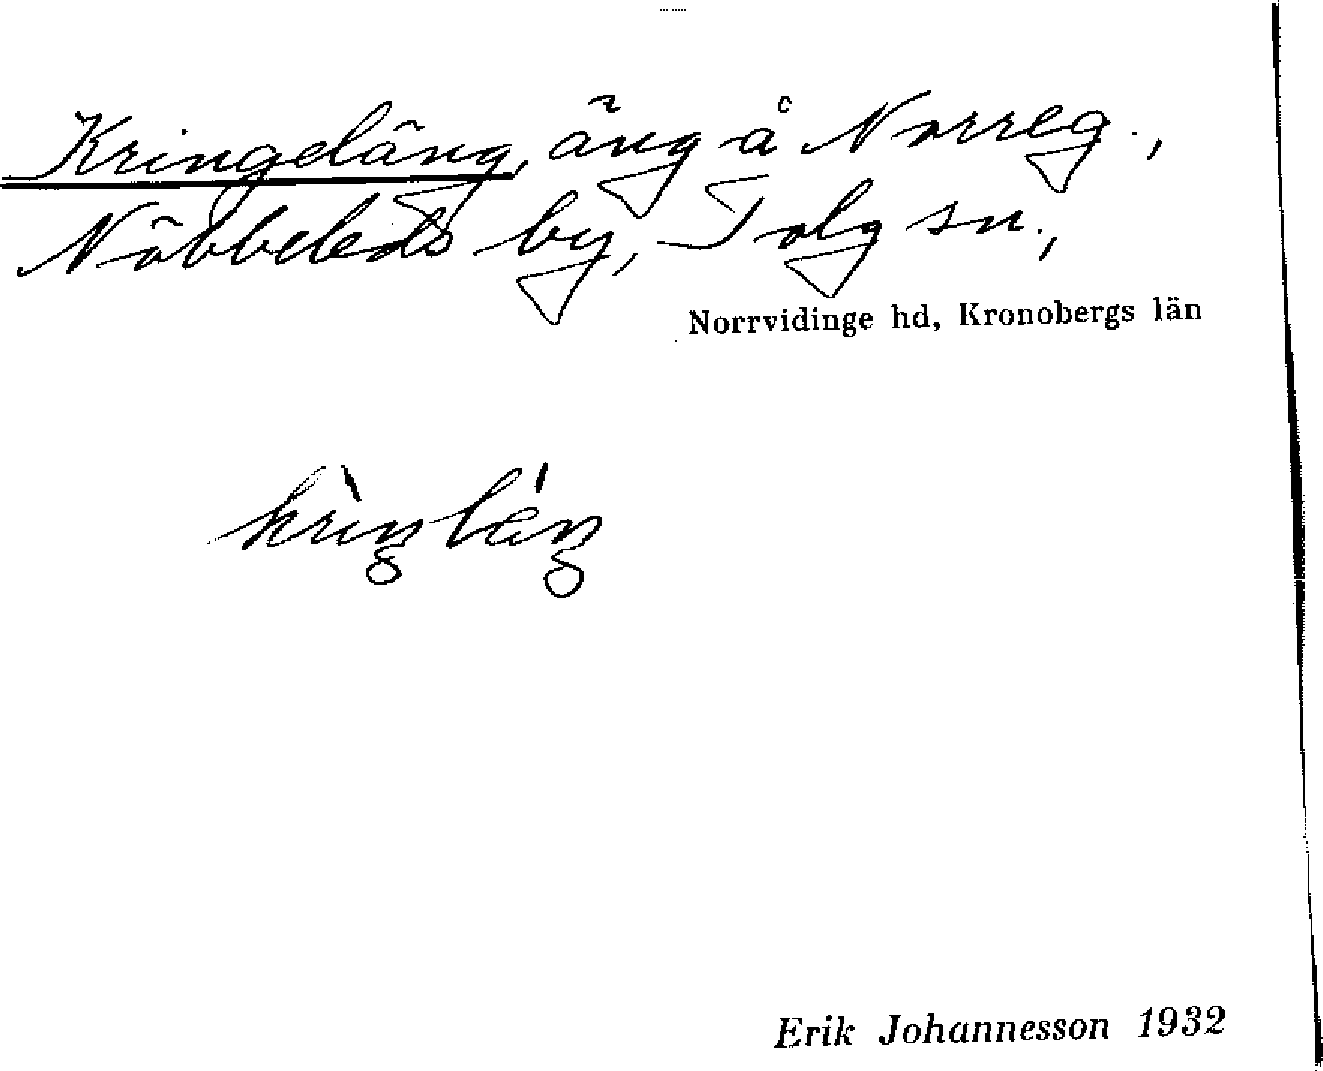 Kringeläng, äng å Norreg.,
Nöbbeleds by, Tolg sn.,
Norrvidinge hd, Kronobergs län
krìŋläŋ
Erik Johannesson 1932